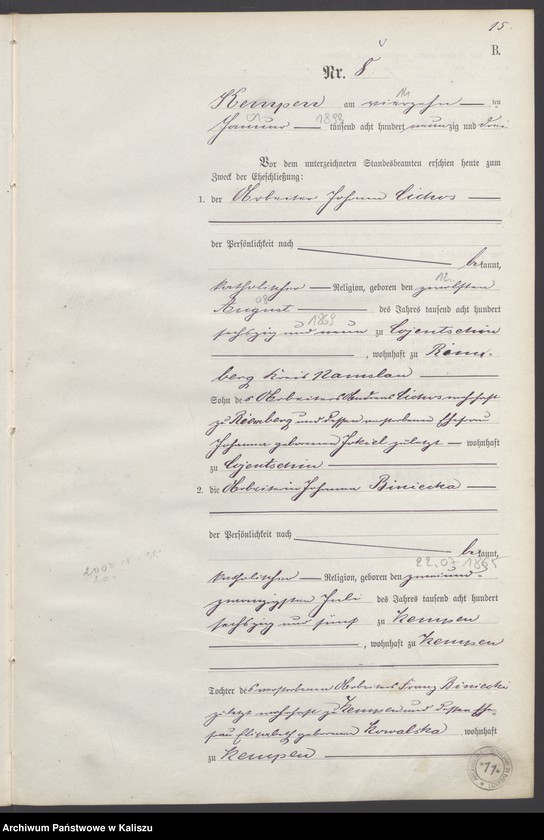 15.
B.
Nr. 8
14
Kempen am vierzehn ten
01 1893
Januar tausend acht hundert neunzig und drei
Vor dem unterzeichneten Standesbeamten erschien heute zum
Zweck der Eheschließung:
1. der Arbeiter Johann Cichos
der Persönlichkeit nach
bekannt,
12.
katholischer Religion, geboren den zwölften
08
August des Jahres tausend acht hundert
1869
sechszig und neun zu Lojentschin
, wohnhaft zu Reim-
berg Kreis Namslau
Sohn des Arbeiters Andreas Cichos wohnhaft
zu Reimberg und dessen verstorbene Ehefrau
Johanna geborenen Jokiel zuletzt wohnhaft
zu Lojentschin
2. die Arbeiterin Johanna Biniecka
der Persönlichkeit nach
bekannt,
22.07 1865
katholischer Religion, geboren den zweiund-
zwanzigsten Juli des Jahres tausend acht hundert
sechszig und fünf zu Kempen
, wohnhaft zu Kempen
Tochter des verstorbenen Arbeiters Franz Biniecki
zuletzt wohnhaft zu Kempen und dessen Ehe-
frau Elisabeth geborenen Kowalska wohnhaft
zu Kempen
*11*
Archiwum Państwowe w Kaliszu